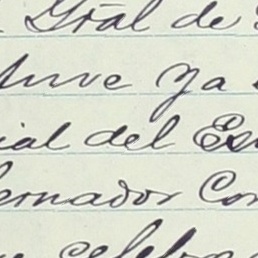 Gral de
tuve ya
ial del Es
ernador Con
celebra